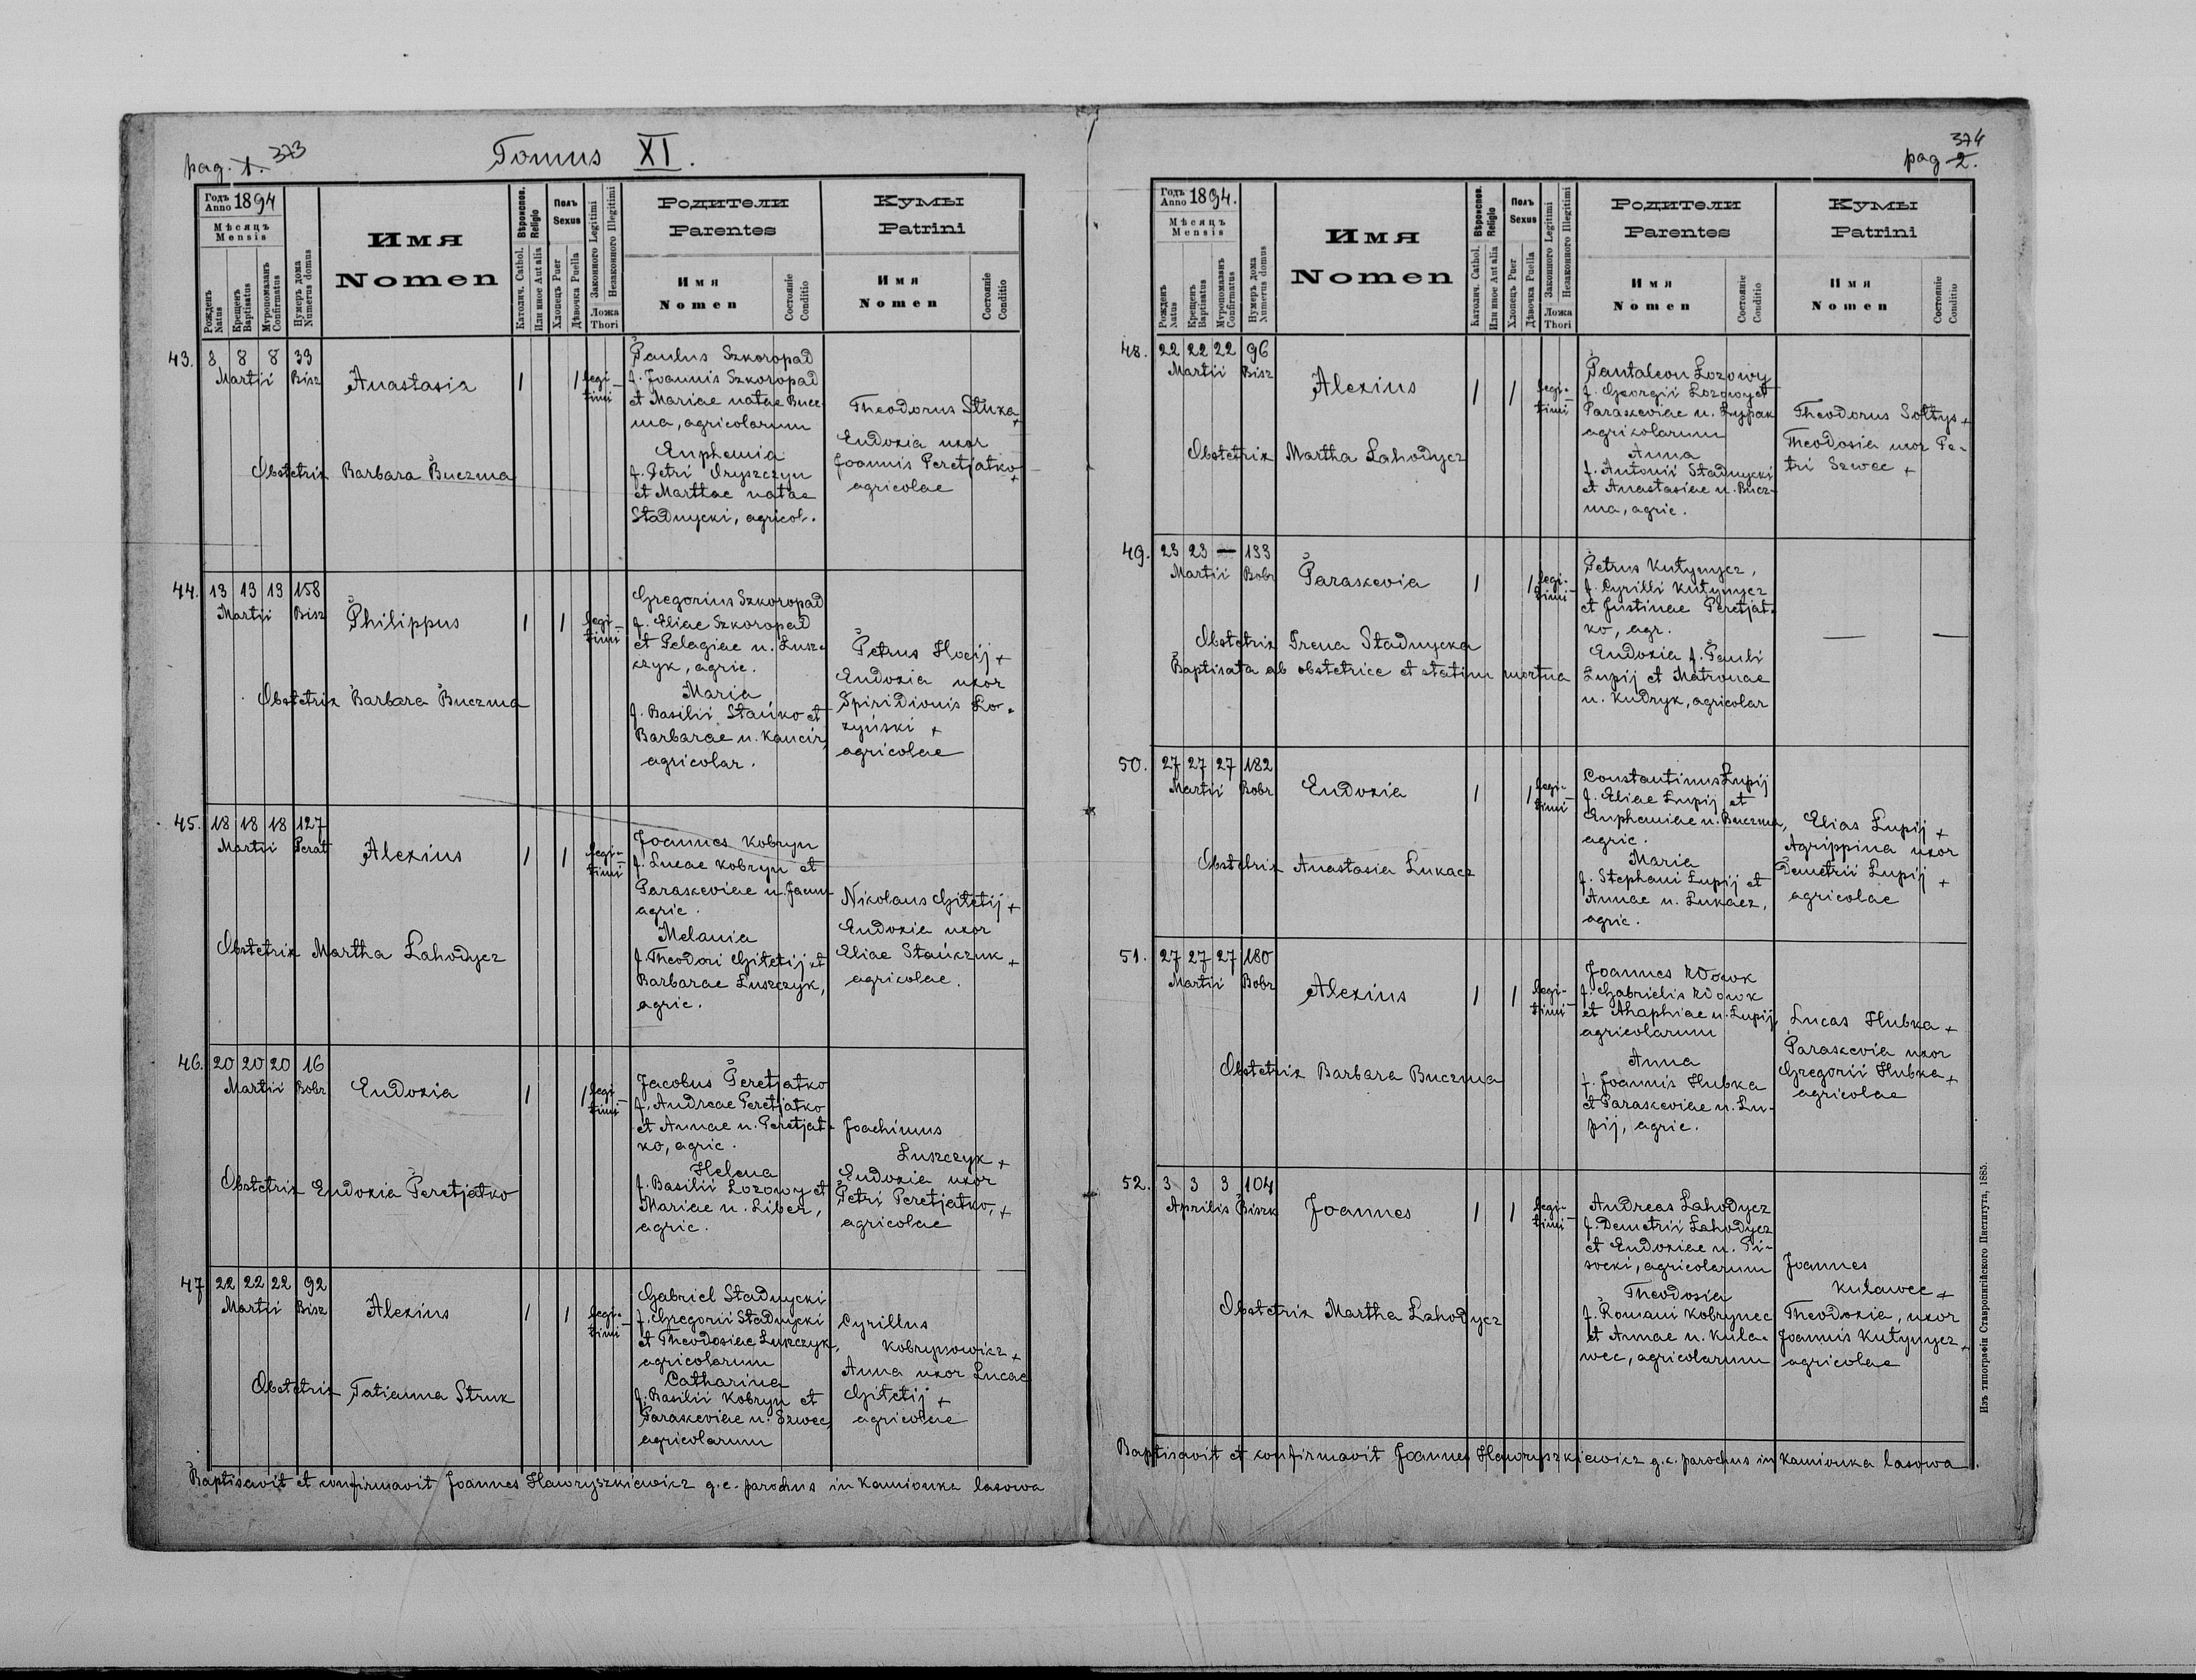 pag. 1. 373
Tomus XI.
Годъ Anno 1894
Мѣсяцъ Mensis
Рожденъ Natus
Крещенъ Baptisatus
Мѵропомазанъ Confirmatus
Нумеръ дома Numerus domus
Имя
Nomen
Вѣроиспов. Religio
Католич. Cathol.
Или иное Aut alia
Полъ Sexus
Хлопецъ Puer
Дѣвочка Puella
Законного Legitimi
Незаконного Illegitimi
Ложа Thori
Родители
Parentes
Имя
Nomen
Состояніе Conditio
Кумы
Patrini
Имя
Nomen
Состояніе Conditio
43. 8 8 8 33
Martii Bisz
Anastasia 1 1 legi-
timi
Obstetrix Barbara Buczma
Paulus Szkoropad
f. Joannis Szkoropad
et Mariae natae Bucz-
ma, agricolarum
Euphemia
f. Petri Oryszczyn
et Marthae natae
Stadnycki, agricol.
Theodorus Stuka +
Eudoxia uxor
Joannis Peretjatko +
agricolae
44. 13 13 13 158
Martii Bisz
Philippus 1 1 legi-
timi
Obstetrix Barbara Buczma
Gregorius Szkoropad
f. Eliae Szkoropad
et Pelagiae n. Łusz-
czyk, agric.
Maria
f. Basilii Stańko et
Barbarae n. Kancir,
agricolar.
Petrus Hocij +
Eudoxia uxor
Spiridionis Ło-
zyński +
agricolae
45. 18 18 18 127
Martii Perat
Alexius 1 1 legi-
timi
Obstetrix Martha Lahodycz
Joannes Kobryn
f. Lucae Kobryn et
Paraskeviae n.
agric.
Melania
f. Theodori Gitetij et
Barbarae Łuszczyk,
agric.
Nikolaus Gitetij +
Eudoxia uxor
Eliae Stańczuk +
agricolae.
46. 20 20 20 16
Martii Bobr
Eudoxia 1 1 legi-
timi
Obstetrix Eudoxia Peretjatko
Jacobus Peretjatko
f. Andreae Peretjatko
et Annae n. Peretjat-
ko, agric.
Helena
f. Basilii Lozowy et
Mariae n. Liber,
agric.
Joachimus
Łuszczyk +
Eudoxia uxor
Petri Peretjatko, +
agricolae
47 22 22 22 92
Martii Bisz
Alexius 1 1 legi-
timi
Obstetrix Tatianna Struk
Gabriel Stadnycki
f. Gregorii Stadnycki
et Theodosiae Łuszczyk,
agricolarum
Catharina
f. Basilii Kobryn et
Paraskeviae n. Szwec,
agricolarum
Cyrillus
Kobrynowicz +
Anna uxor Lucae
Gitetij +
agricolae
Baptisavit et confirmavit Joannes Hawryszkiewicz g. c. parochus in Kamionka lasowa
374
pag 2.
Годъ Anno 1894.
Мѣсяцъ Mensis
Рожденъ Natus
Крещенъ Baptisatus
Мѵропомазанъ Confirmatus
Нумеръ дома Numerus domus
Имя
Nomen
Вѣроиспов. Religio
Католич. Cathol.
Или иное Aut alia
Полъ Sexus
Хлопецъ Puer
Дѣвочка Puella
Законного Legitimi
Незаконного Illegitimi
Ложа Thori
Родители
Parentes
Имя
Nomen
Состояніе Conditio
Кумы
Patrini
Имя
Nomen
Состояніе Conditio
48. 22 22 22 96
Martii Bisz
Alexius 1 1 legi-
timi
Obstetrix Martha Lahodycz
Pantaleon Lozowy
f. Georgii Lozowy et
Paraskeviae n. Łypak
agricolarum
Anna
f. Antonii Stadnycki
et Anastasiae n. Bucz-
ma, agric.
Theodorus Sołtys +
Theodosia uxor Pe-
tri Szwec +
49. 23 23 — 133
Martii Bobr
Paraskevia 1 1 legi-
timi
Obstetrix Irena Stadnycka
Baptisata ab obstetrice et statim mortua
Petrus Kutynycz,
f. Cyrilli Kutynycz
et Justinae Peretjat-
ko, agr.
Eudoxia f. Pauli
Łupij et Matronae
n. Kudryk, agricolar
— —
50. 27 27 27 182
Martii Bobr
Eudoxia 1 1 legi-
timi
Obstetrix Anastasia Lukacz
Constantinus Łupij
f. Eliae Łupij et
Euphemiae n. Buczma,
agric.
Maria
f. Stephani Łupij et
Annae n. Łukacz,
agric.
Elias Łupij +
Agrippina uxor
Demetrii Łupij +
agricolae
51. 27 27 27 180
Martii Bobr
Alexius 1 1 legi-
timi
Obstetrix Barbara Buczma
Joannes Wowk
f. Gabrielis Wowk
et Ahaphiae n. Łupij,
agricolarum
Anna
f. Joannis Hubka
et Paraskeviae n. Łu-
pij, agric.
Lucas Hubka +
Paraskevia uxor
Gregorii Hubka +
agricolae
52. 3 3 3 104
Aprilis Biszk
Joannes 1 1 legi-
timi
Obstetrix Martha Lahodycz
Andreas Lahodycz
f. Demetrii Lahodycz
et Eudoxiae n. Pi-
socki, agricolarum
Theodosia
f. Romani Kobrynec
et Annae n. Kula-
wec, agricolarum
Joannes
Kulawec +
Theodosia, uxor
Joannis Kutynycz +
agricolae
Baptisavit et confirmavit Joannes Hawryszkiewicz g. c. parochus in Kamionka lasowa.
Изъ типографіи Ставропигійского Института, 1885.